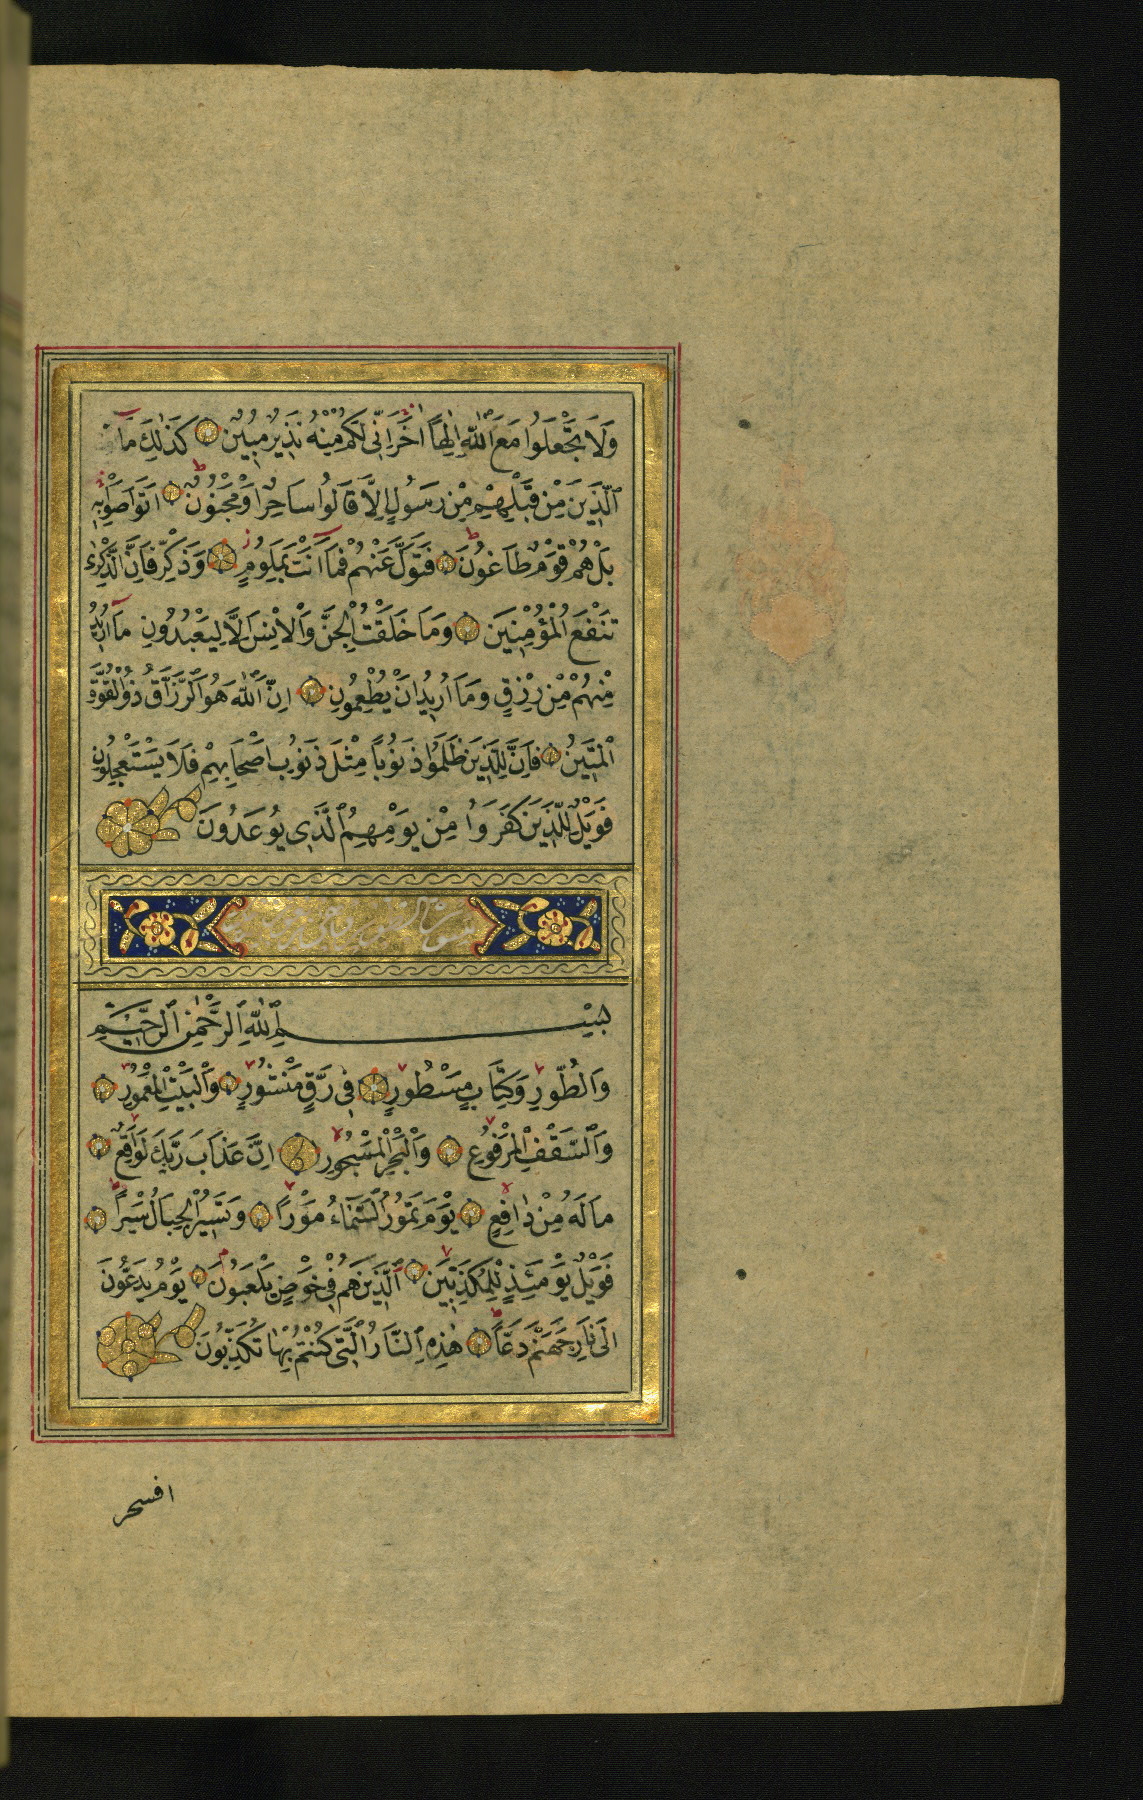 وَلَا تَجْعَلُوا مَعَ اللّٰهِ اِلٰهاً اٰخَرَ اِنّٖي لَكُمْ مِنْهُ نَذٖيرٌ مُبٖينٌ كَذٰلِكَ مَٓا
الَّذٖينَ مِنْ قَبْلِهِمْ مِنْ رَسُولٍ اِلَّا قَالُوا سَاحِرٌ اَوْ مَجْنُونٌ اَتَوَاصَوْا بِهٖ
بَلْ هُمْ قَوْمٌ طَاغُونَ فَتَوَلَّ عَنْهُمْ فَمَٓا اَنْتَ بِمَلُومٍ وَذَكِّرْ فَاِنَّ الذِّكْرٰى
تَنْفَعُ الْمُؤْمِنٖينَ وَمَا خَلَقْتُ الْجِنَّ وَالْاِنْسَ اِلَّا لِيَعْبُدُونِ مَٓا اُرٖيدُ
مِنْهُمْ مِنْ رِزْقٍ وَمَا اُرٖيدُ اَنْ يُطْعِمُونِ اِنَّ اللّٰهَ هُوَ الرَّزَّاقُ ذُو الْقُوَّةِ
الْمَتٖينُ فَاِنَّ لِلَّذٖينَ ظَلَمُوا ذَنُوباً مِثْلَ ذَنُوبِ اَصْحَابِهِمْ فَلَا يَسْتَعْجِلُونِ
فَوَيْلٌ لِلَّذٖينَ كَفَرُوا مِنْ يَوْمِهِمُ الَّذٖي يُوعَدُونَ
سورة الطور
بِسْمِ اللّٰهِ الرَّحْمٰنِ الرَّحٖيمِ
وَالطُّورِ وَكِتَابٍ مَسْطُورٍ فٖي رَقٍّ مَنْشُورٍ وَالْبَيْتِ الْمَعْمُورِ
وَالسَّقْفِ الْمَرْفُوعِ وَالْبَحْرِ الْمَسْجُورِ اِنَّ عَذَابَ رَبِّكَ لَوَاقِعٌ
مَا لَهُ مِنْ دَافِعٍ يَوْمَ تَمُورُ السَّمَٓاءُ مَوْراً وَتَسٖيرُ الْجِبَالُ سَيْراً
فَوَيْلٌ يَوْمَئِذٍ لِلْمُكَذِّبٖينَ الَّذٖينَ هُمْ فٖي خَوْضٍ يَلْعَبُونَ يَوْمَ يُدَعُّونَ
اِلٰى نَارِ جَهَنَّمَ دَعّاً هٰذِهِ النَّارُ الَّتٖي كُنْتُمْ بِهَا تُكَذِّبُونَ
افسحر